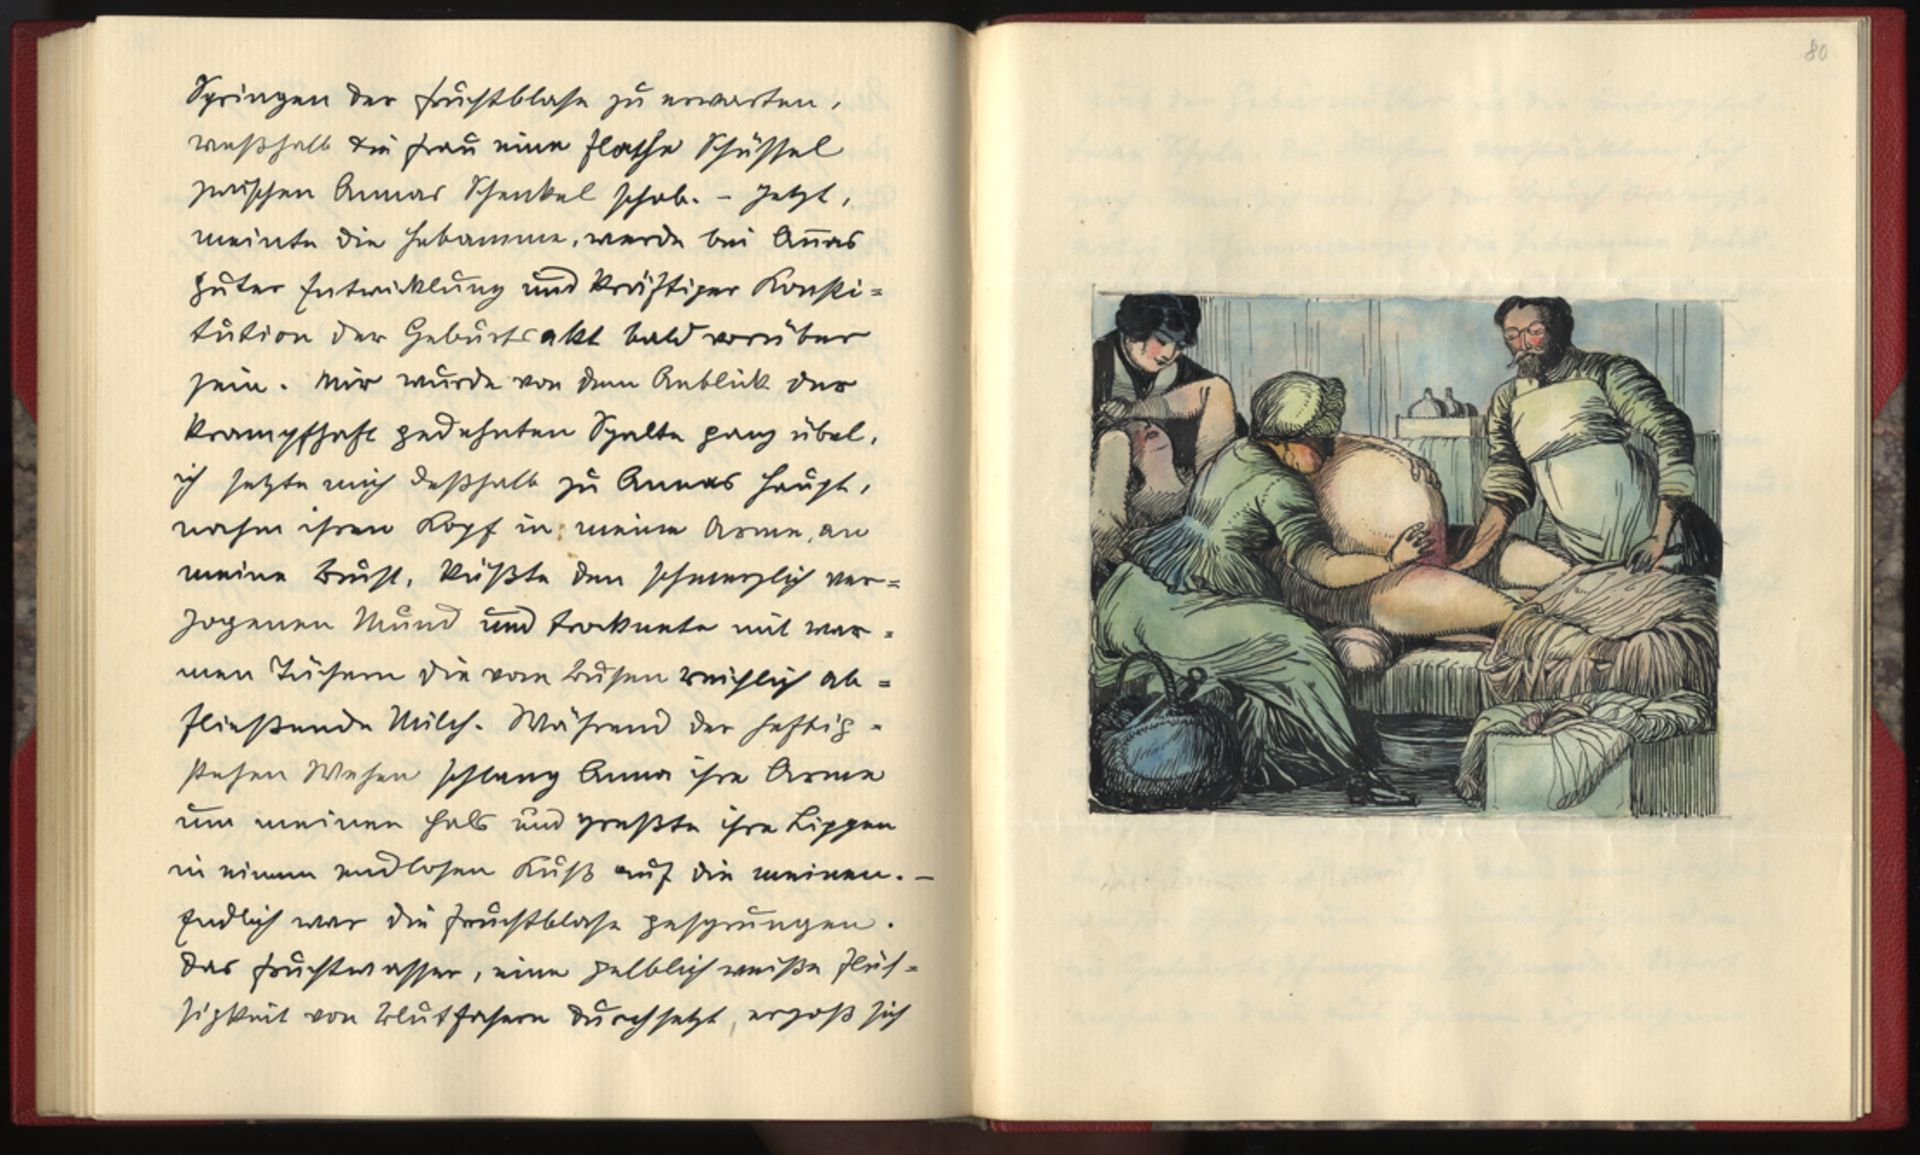 Springen der Fruchtblase zu erwarten,
weßhalb die Frau eine flache Schüssel
zwischen Annas Schenkel schob. – Jetzt,
meinte die Hebamme, werde bei Anas
guter Entwicklung und kräftiger Konsti=
tution der Geburtsakt bald vorüber
sein. Mir wurde von dem Anblick der
krampfhaft gedehnten Spalte ganz übel,
ich setzte mich deßhalb zu Annas Haupt,
nahm ihren Kopf in meine Arme, an
meine Brust, küßte den schmerzlich ver=
zogenen Mund und trocknete mit war=
men Tüchern die vom Busen reichlich ab=
fließende Milch. Während der heftig=
sten Wehen schlang Anna ihre Arme
um meinen Hals und preßte ihre Lippen
in einem endlosen Kuß auf die meinen. –
Endlich war die Fruchtblase gesprungen.
Das Fruchtwasser, eine gelblich weiße Flüs=
sigkeit von Blutfasern durchsetzt, ergoß sich
80